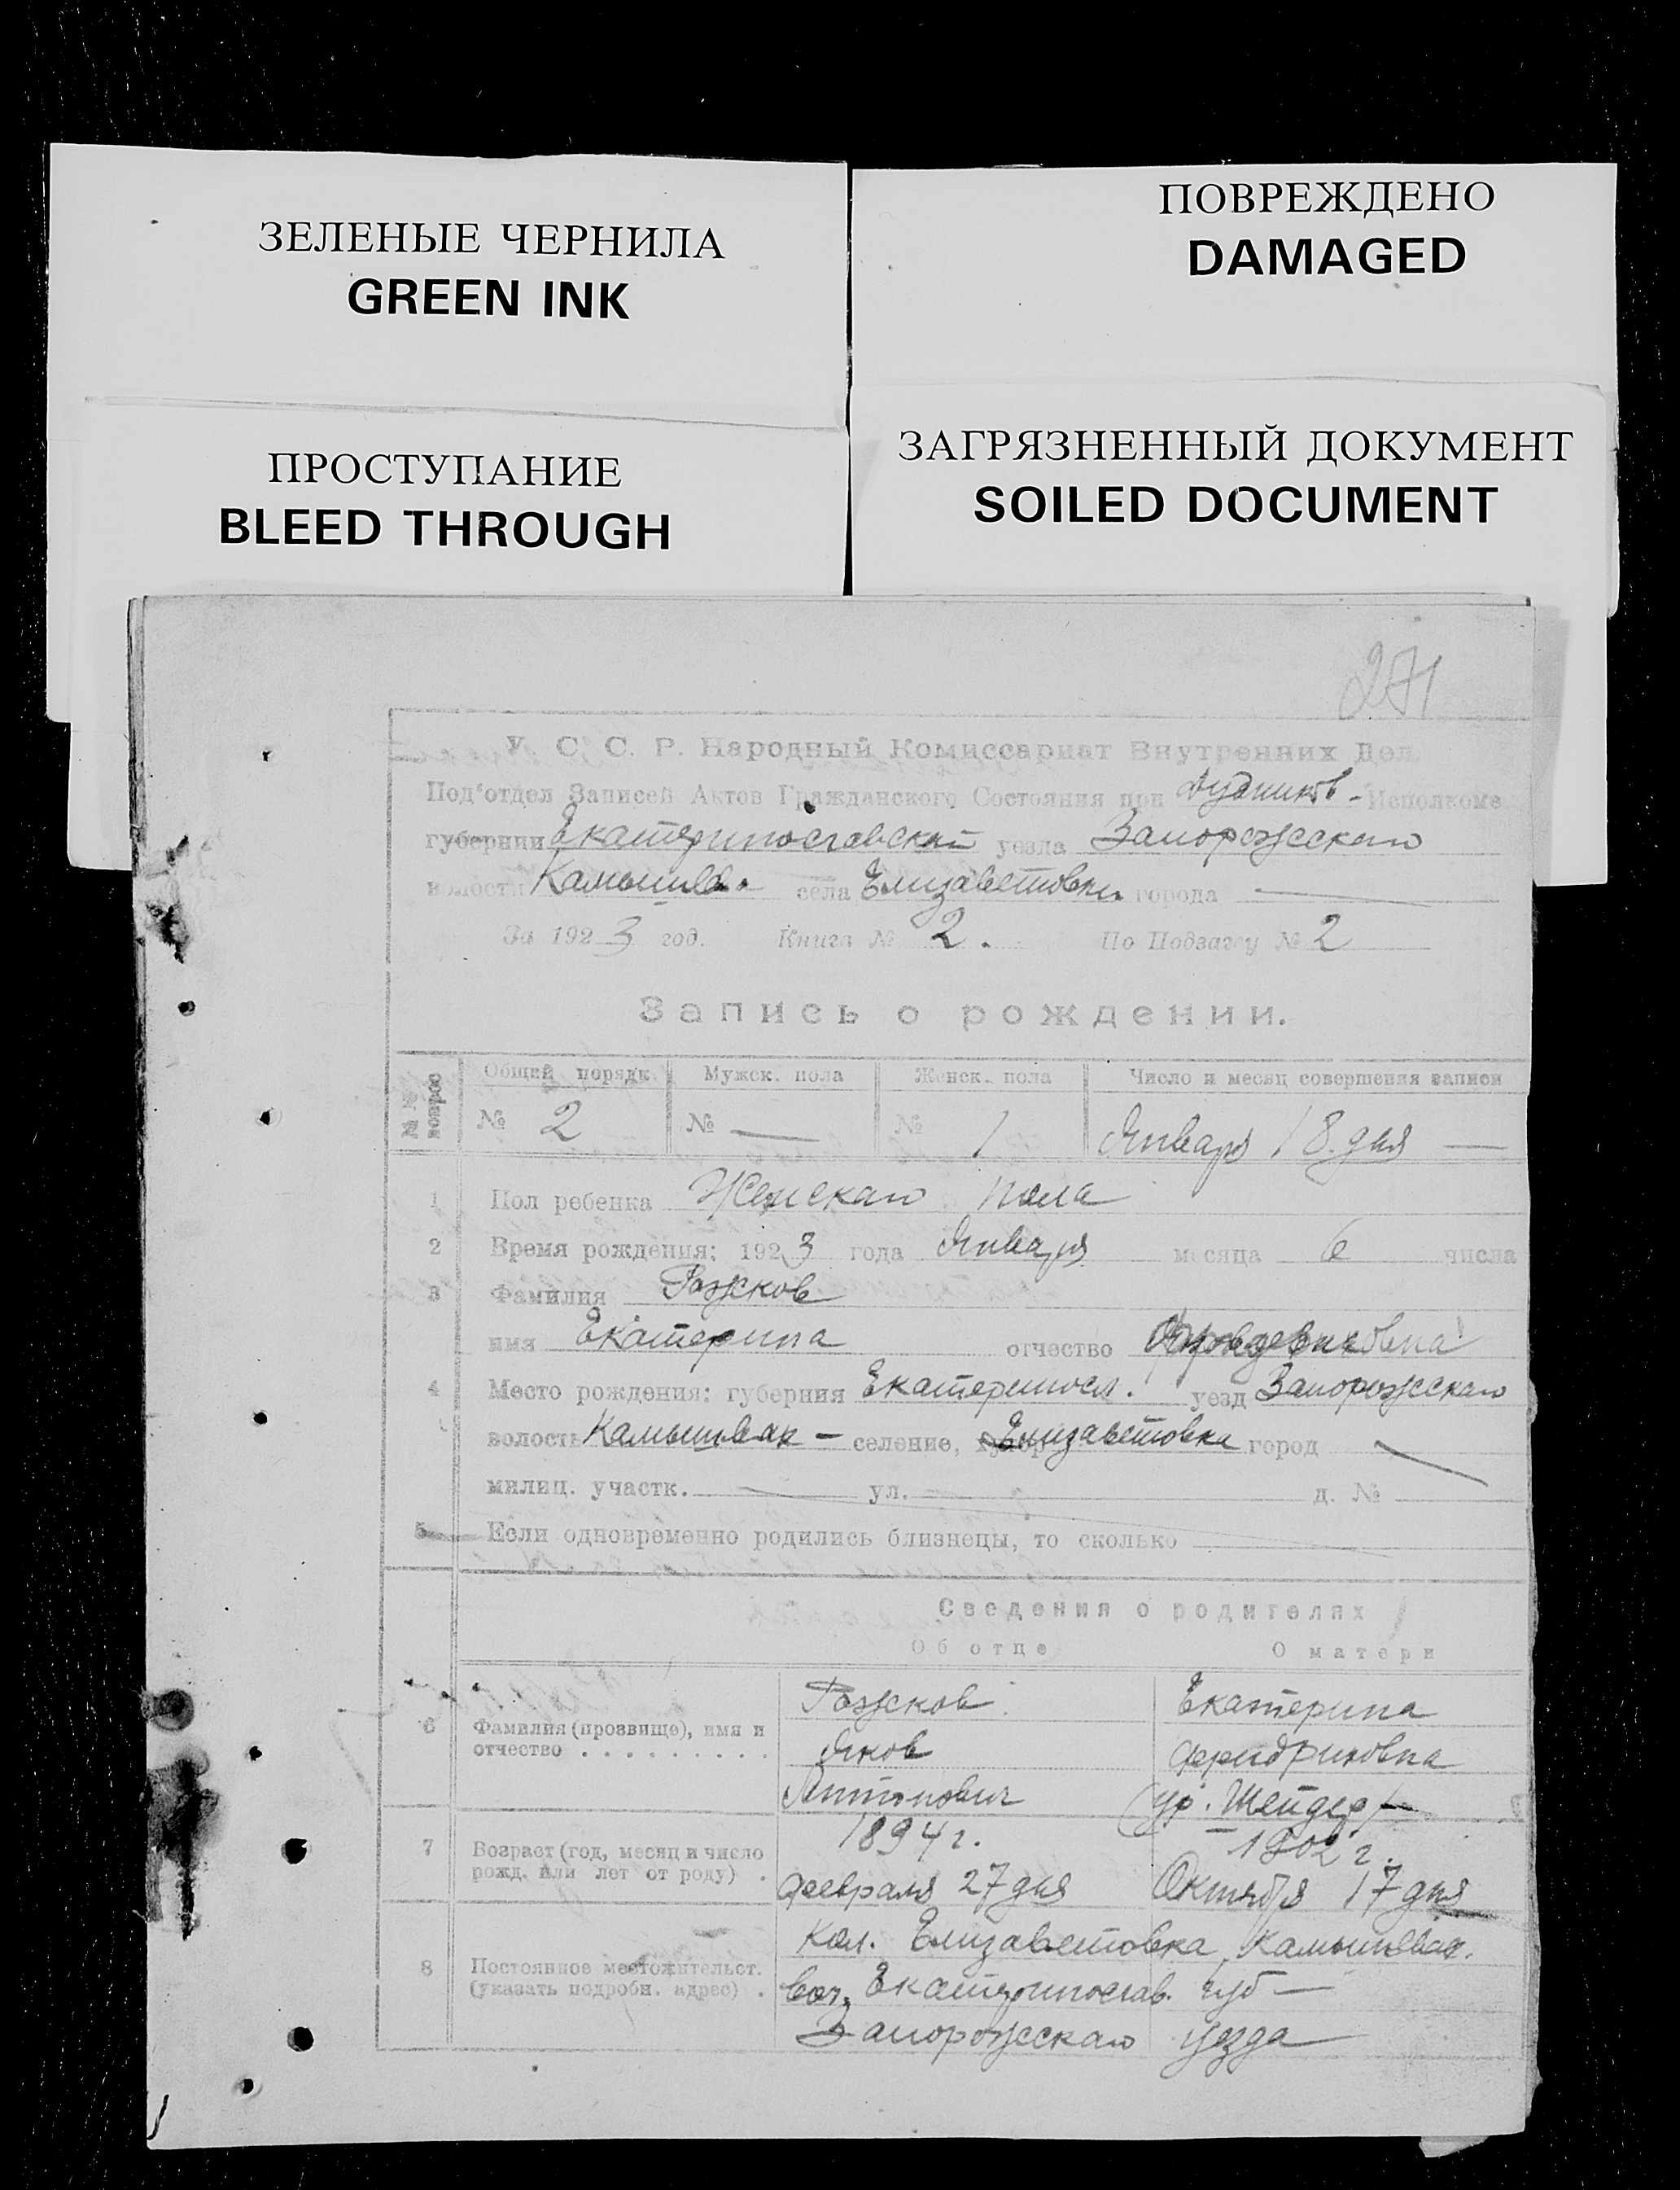 ЗЕЛЕНЫЕ ЧЕРНИЛА
GREEN INK
ПОВРЕЖДЕНО
DAMAGED
ПРОСТУПАНИЕ
BLEED THROUGH
ЗАГРЯЗНЕННЫЙ ДОКУМЕНТ
SOILED DOCUMENT
271
У. С. С. Р. Народный Комиссариат Внутренних Дел
Под'отдел Записей Актов Гражданского Состояния при Дудников - Исполкоме
губернии Екатеринославской уезда Запорожского
волости Камышев. села Елизаветовки города —
За 1923 год. Книга № 2. По Подзагсу № 2
Запись о рождении.
№№ вопрос
Общий порядк. Мужск. пола Женск. пола Число и месяц совершения записи
№ 2 № — № 1 Января 18 дня —
1 Пол ребенка Женскаго пола
2 Время рождения: 1923 года Января месяца 6 числа
3 Фамилия Рожков
имя Екатерина отчество
4 Место рождения: губерния Екатеринослав. уезд Запорожскаго
волость Камышевах — селение, Елизаветовка город —
милиц. участк. — ул. — д. №
5 Если одновременно родились близнецы, то сколько
Сведения о родителях
Об отце О матери
6 Фамилия (прозвище), имя и
отчество . . . . . . . . . .
Рожков Екатерина
Яков Феридриховна
Антонович (ур. Шейдер) —
7 Возраст (год, месяц и число
рожд. или лет от роду) .
1894 г. 1902 г.
Февраля 27 дня Октября 17 дня
8 Постоянное местожительст.
(указать подробн. адрес) .
Кол. Елизаветовка, Камышевах.
вол. Екатеринослав. губ —
Запорожскаго уезда